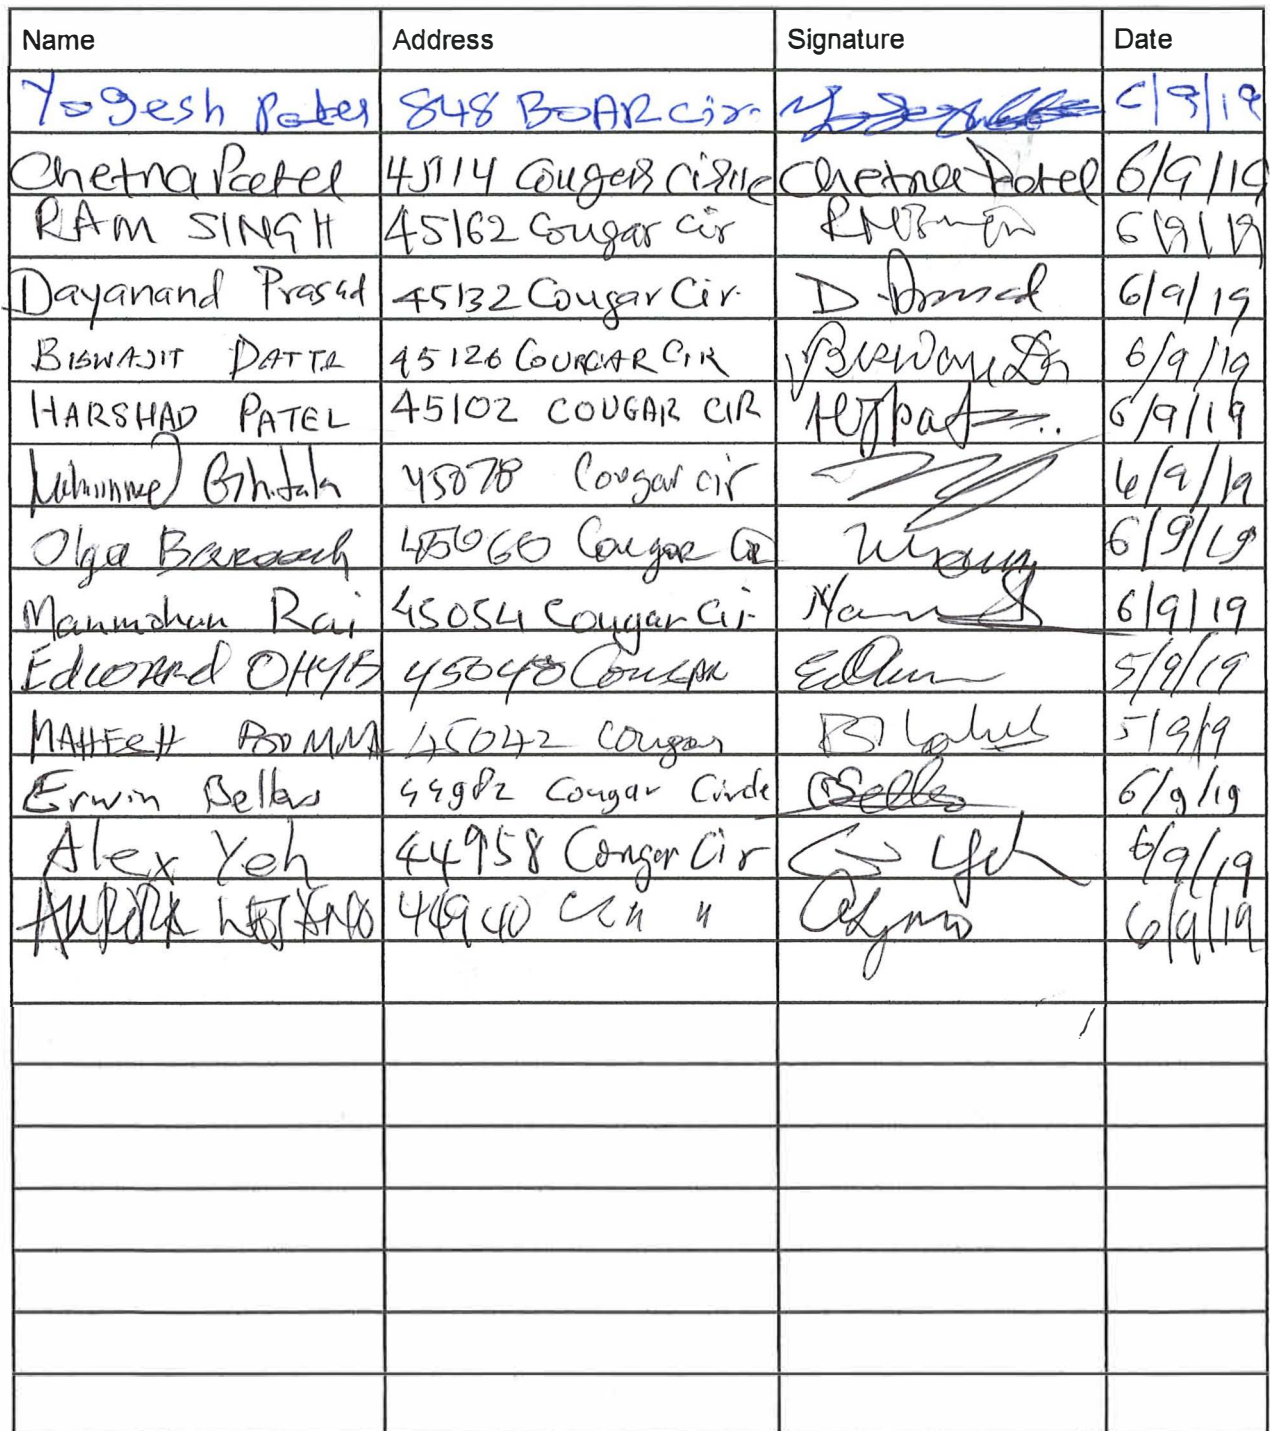 Name Address Signature Date
Yogesh Patel 848 BOAR cir. 6/9/19
Chetna Patel 45114 Cougar Circle Chetna Patel 6/9/19
RAM SINGH 45162 Cougar Cir 6/9/19
Dayanand Prasad 45132 Cougar Cir. D. Prasad 6/9/19
BISWAJIT DATTA 45126 COURGAR CIR 6/9/19
HARSHAD PATEL 45102 COUGAR CIR 6/9/19
45078 Cougar cir 6/9/19
Olga 45060 Cougar Cir 6/9/19
Manmohan Rai 45054 Cougar Cir. 6/9/19
Edward 45048 Cougar 5/9/19
MAHESH BOMMA 45042 Cougar 5/9/19
Erwin Bellos 44982 Cougar Circle 6/9/19
Alex Yeh 44958 Cougar Cir Yeh 6/9/19
AURORA 44940 " " 6/9/19